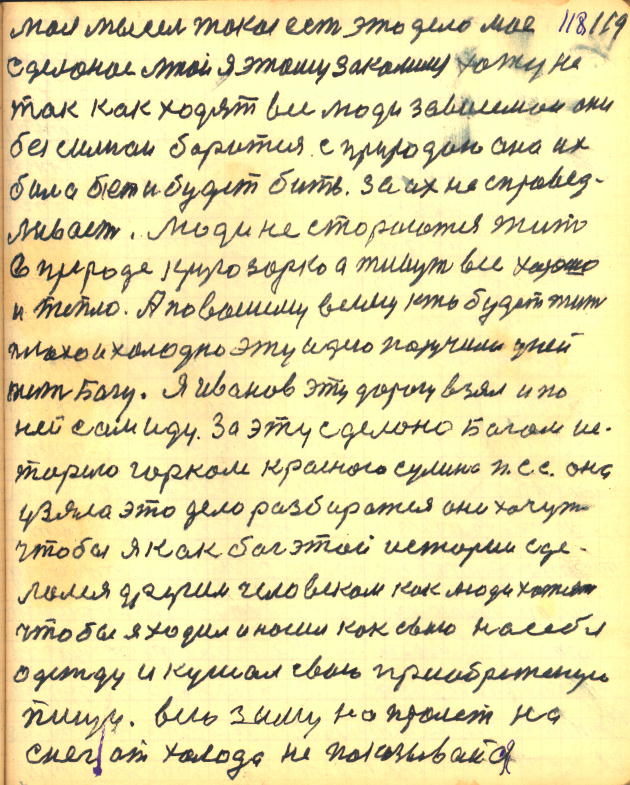 моя мысел такая ест это дело мае 118/119
сделоное мной я этому закалины хожу не
так как ходят все люди зависемои они
безсилнои боротся с природаю она их
била беть и будет бить. За их не справед-
ливаст. Люди не стораются жить
в природе кругозорко а живут все хорошо
и тепло. А по вашему всему кто будет жит
плохо и холодно эту идею получили у ней
жит Богу. Я Иванов эту дорогу взял и по
ней сам иду. За эту сделоно Богом ис-
торию горком красного сулина п.с.с. она
узяла это дело разбиратся они хочут
чтобы я как бог этой истории сде-
лался другим человеком как люди хотят
чтобы я ходил и носил как свою на себя
одежду и кушал свою приобретеную
пищу. всю зиму на пролет на
снег от холода не показывайся